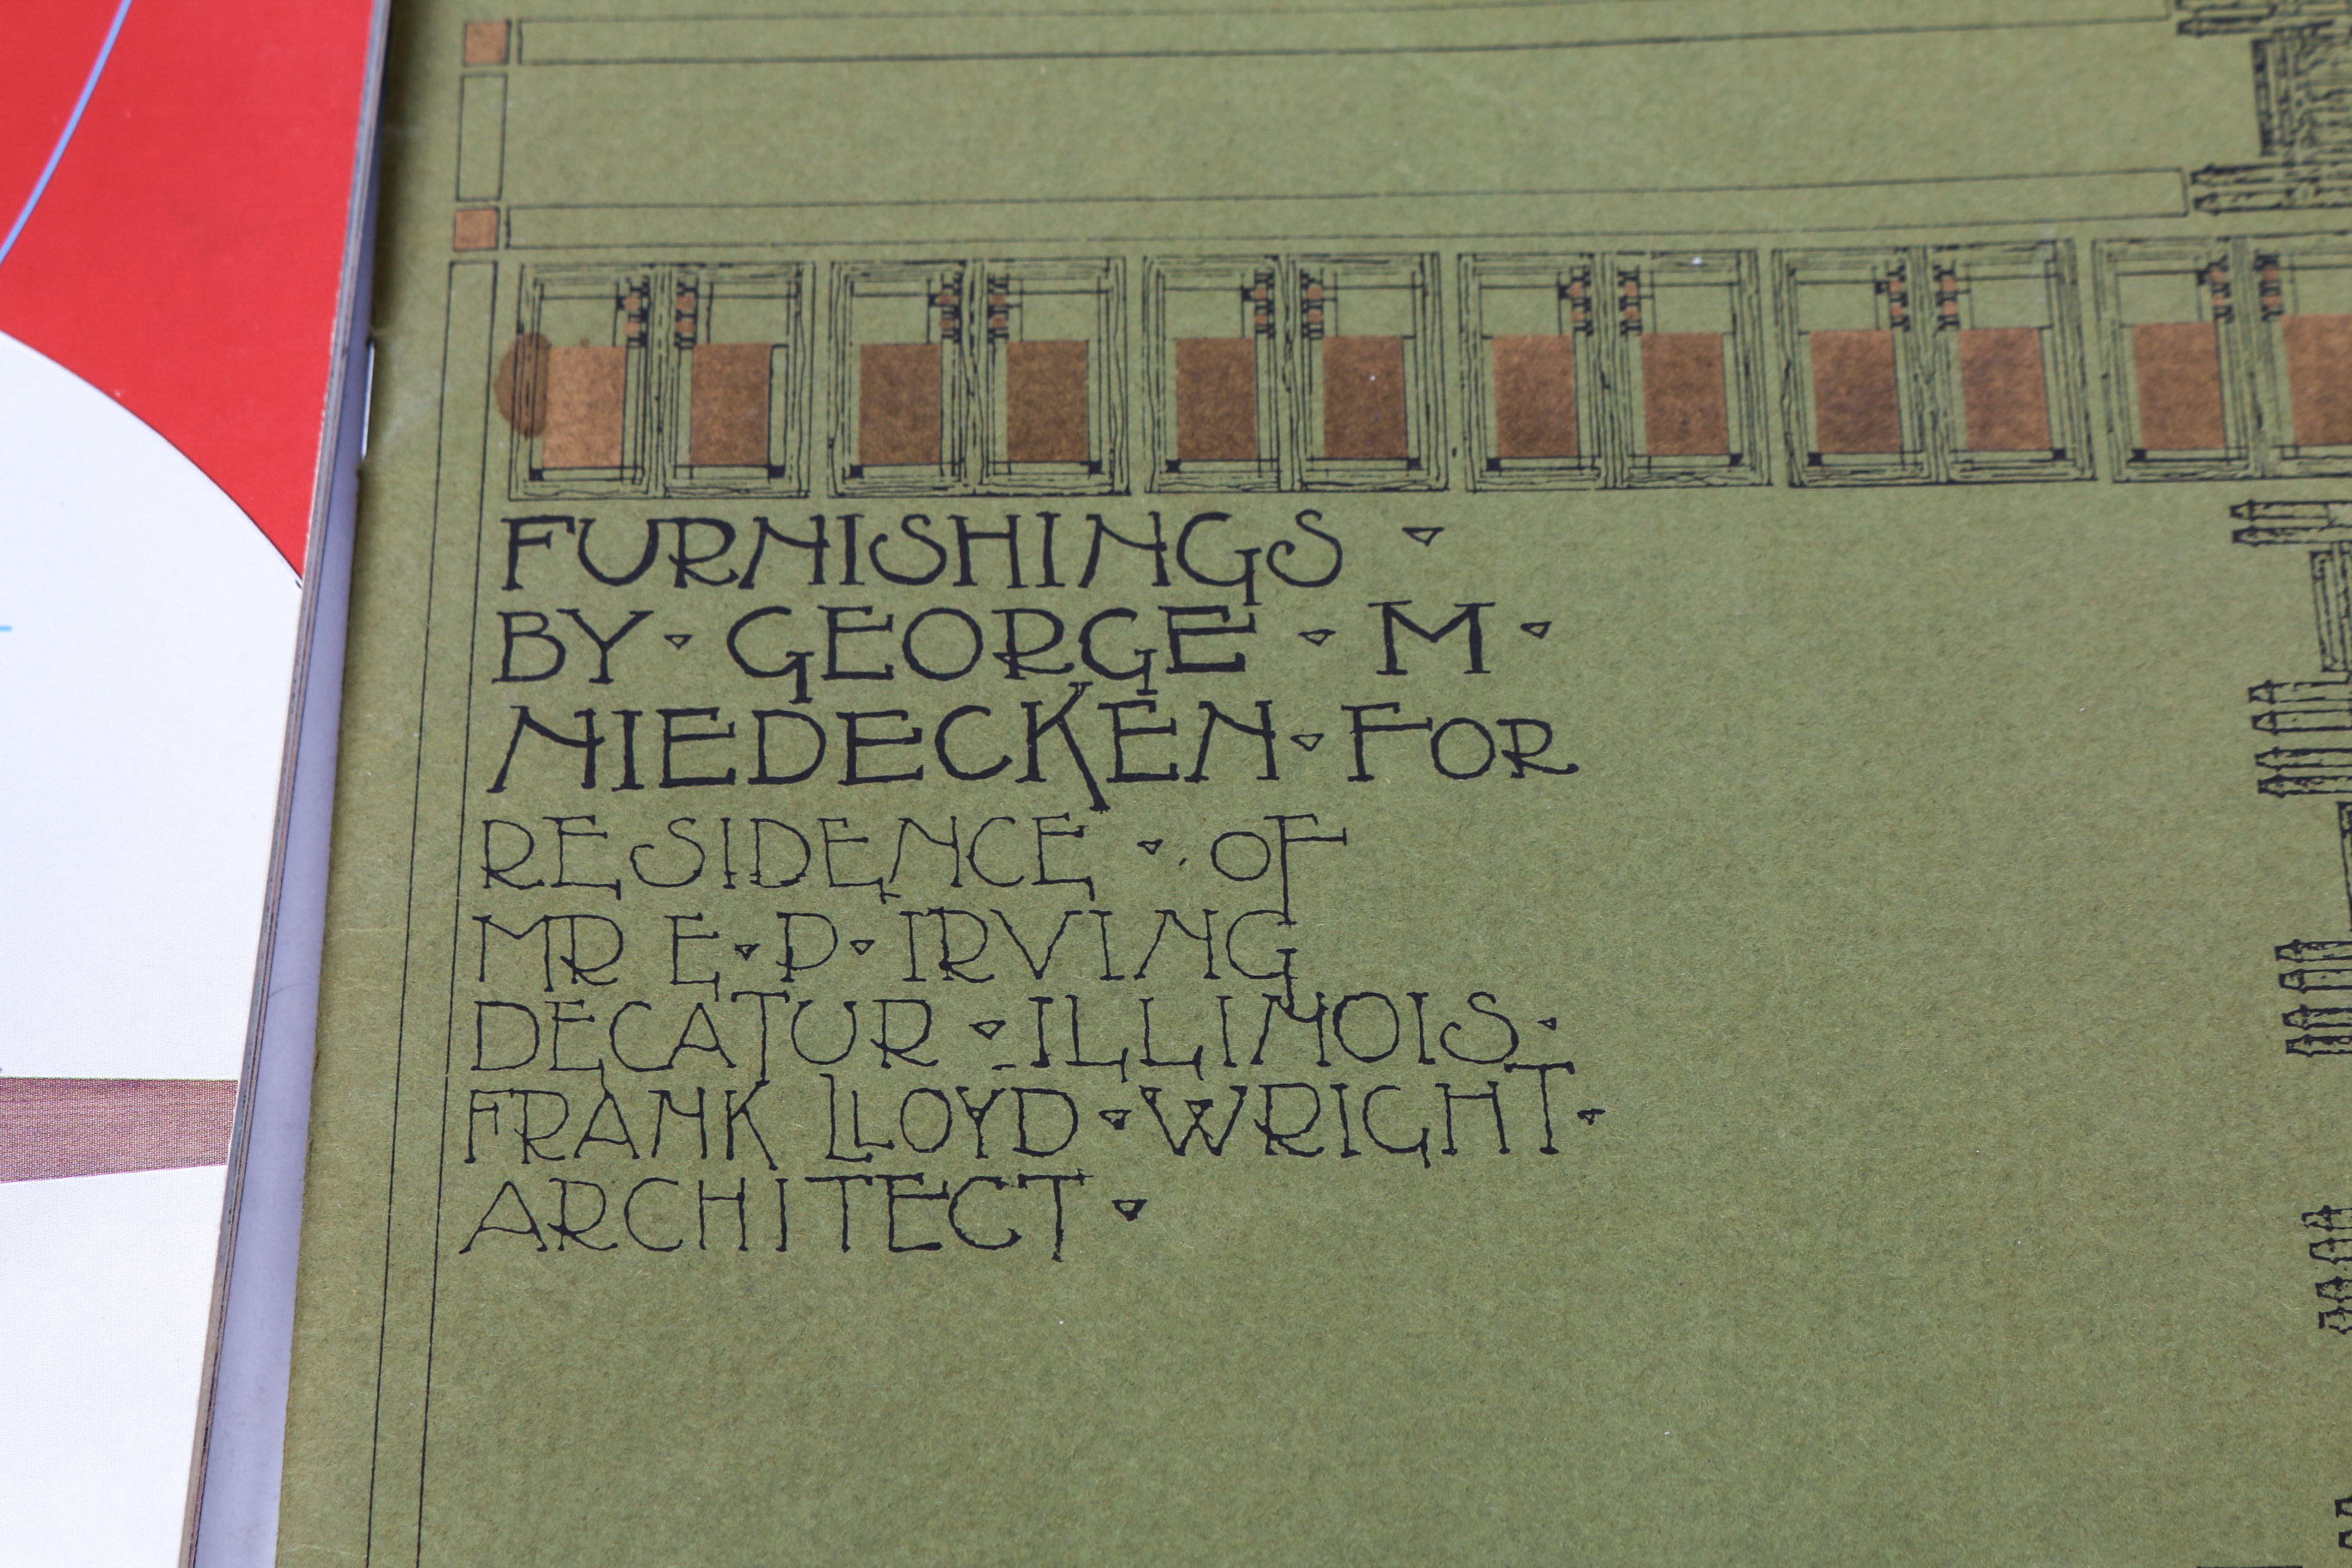 FURNISHINGS
BY GEORGE M
NIEDECKEN FOR
RESIDENCE OF
MR E P IRVING
DECATUR ILLINOIS
FRANK LLOYD WRIGHT
ARCHITECT